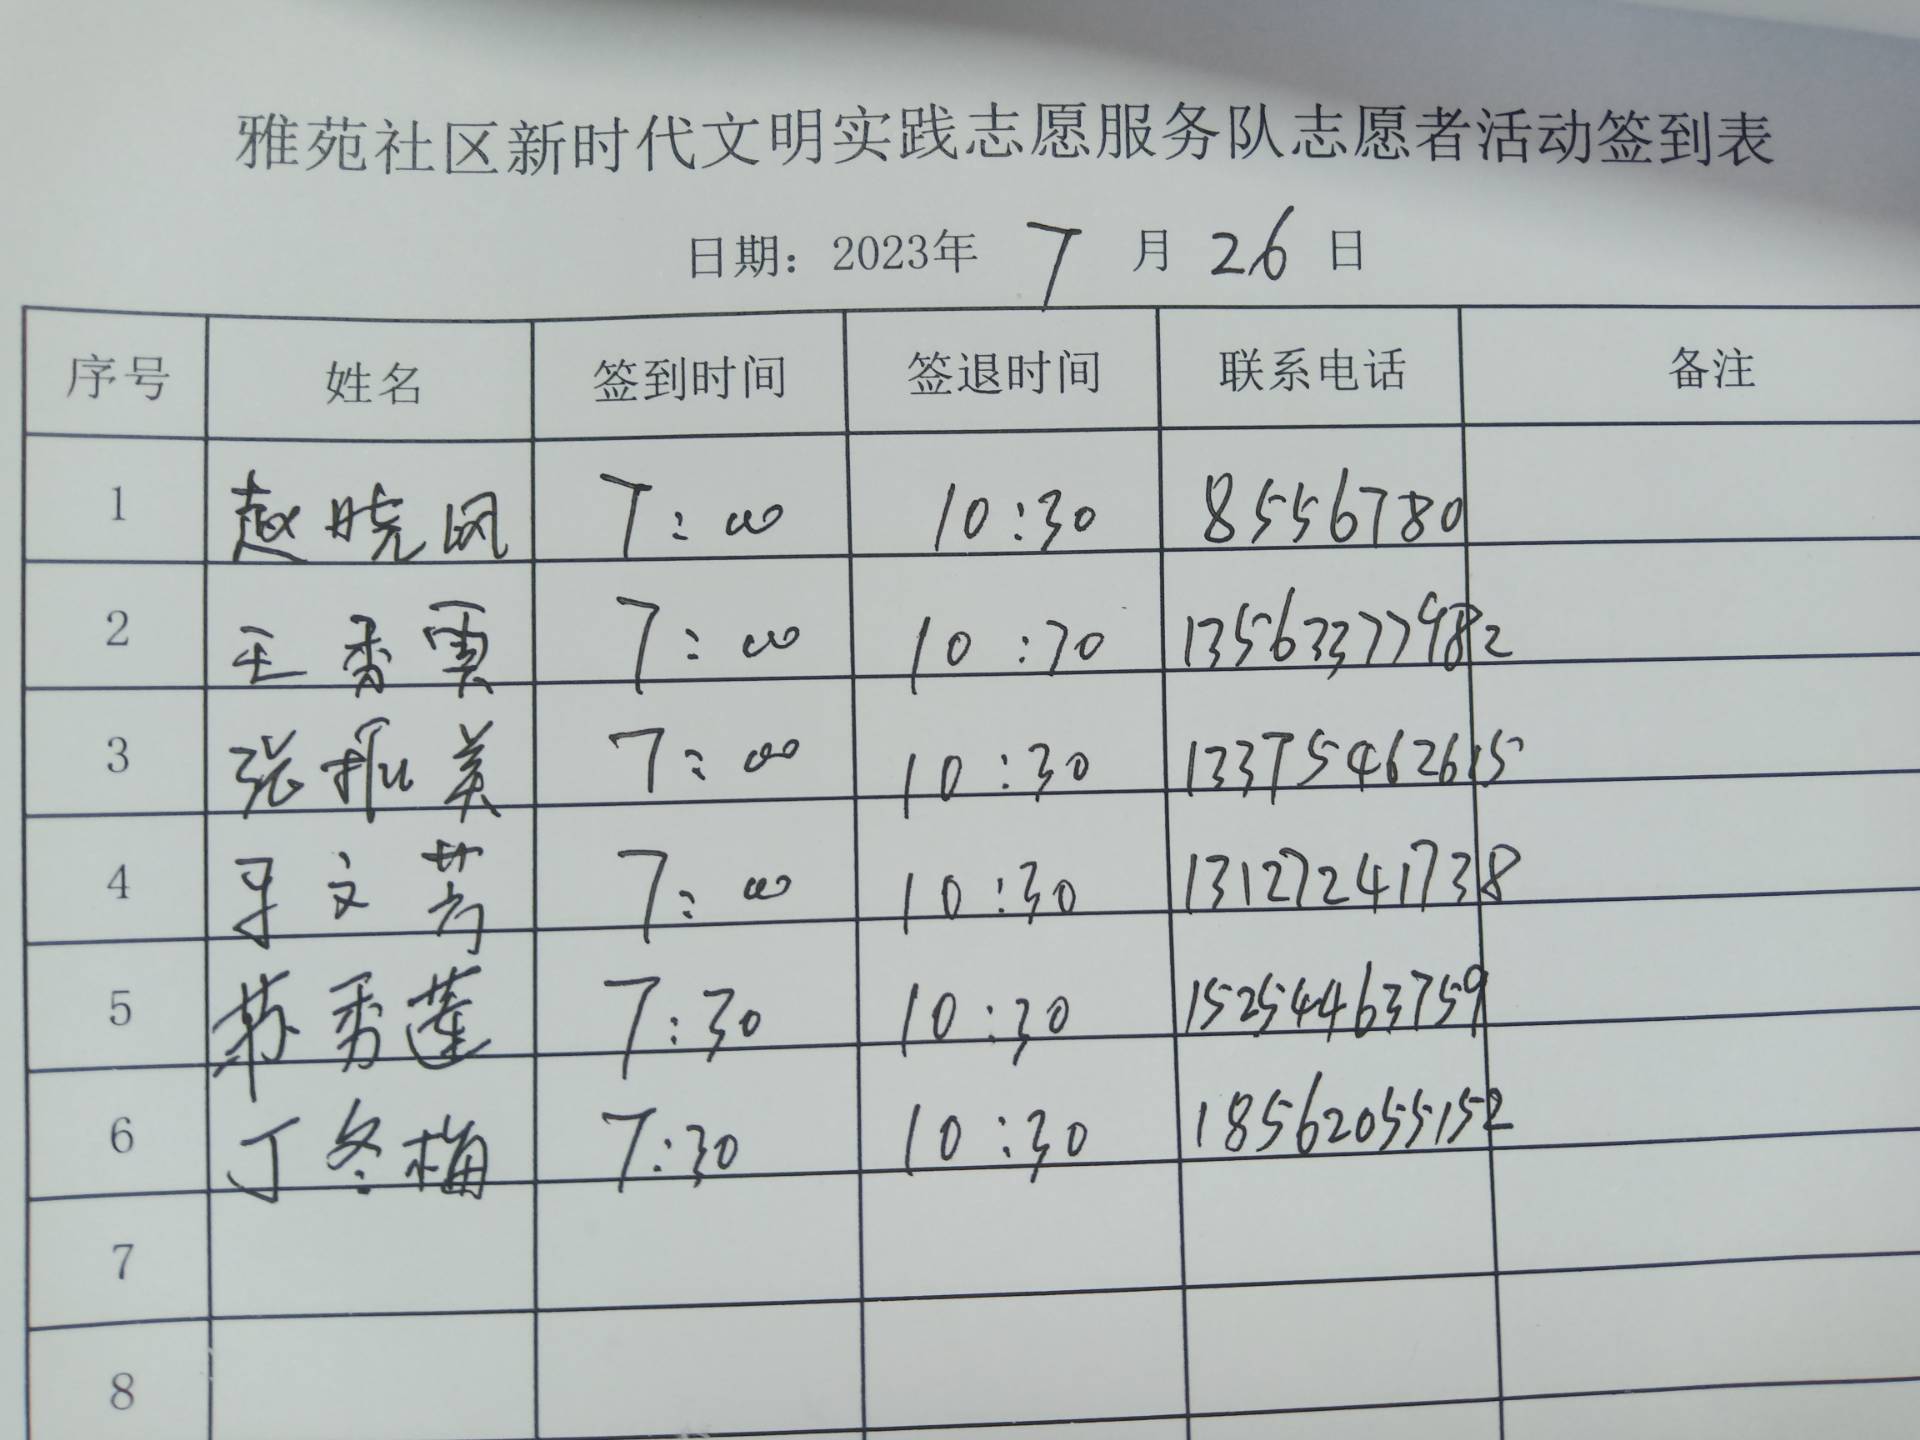 雅苑社区新时代文明实践志愿服务队志愿者活动签到表
日期：2023年 7 月 26 日
序号 姓名 签到时间 签退时间 联系电话 备注
1 赵晓风 7:00 10:30 8556780
2 王秀云 7:00 10:30 13563377982
3 张振美 7:00 10:30 13375462615
4 王文芳 7:00 10:30 13127241738
5 苏秀莲 7:30 10:30 15254463759
6 丁冬梅 7:30 10:30 18562055152
7
8